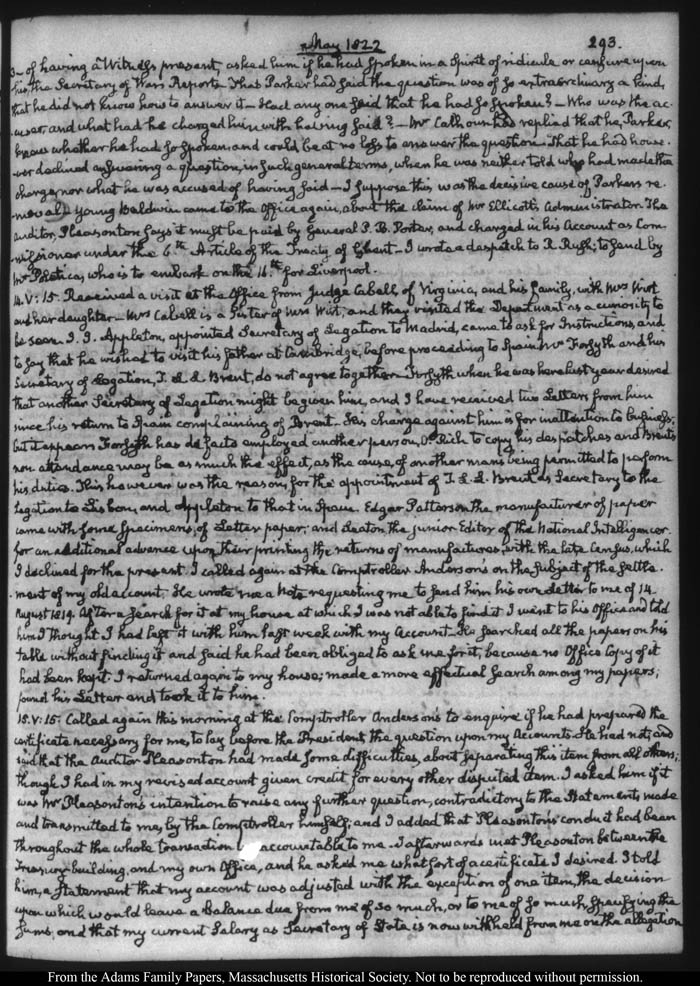 May 1822 293.
of having a Witness present, asked him if he had spoken in a Spirit of ridicule or censure upon
his, the Secretary of Wars Report. That Parker had said the question was of so extraordinary a kind,
that he did not know how to answer it — Had any one said that he had so spoken? — Who was the ac-
cuser, and what had he charged him with having said? — Mr Calhoun had replied that he, Parker,
knew whether he had so spoken, and could be at no loss to answer the question. That he had how-
ever declined answering a question, in such general terms, when he was neither told who had made the
charge, nor what he was accused of having said — I suppose this was the decisive cause of Parkers re-
moval. Young Baldwin came to the Office again, about the claim of Mr Ellicott's Administrator. The
Auditor, Pleasonton says it must be paid by General P. B. Porter, and charged in his Account as Com-
missioner under the 6th Article of the Treaty of Ghent — I wrote a despatch to R. Rush; to send by
Mr Poletica, who is to embark on the 16th for Liverpool.
14. V: 15. Received a visit at the Office from Judge Cabell of Virginia, and his family, with Mrs Wirt
and her daughter — Mrs Cabell is a Sister of Mrs Wirt; and they visited the Department as a curiosity to
be seen. J. J. Appleton, appointed Secretary of Legation to Madrid, came to ask for Instructions, and
to say that he wished to visit his father at Cambridge, before proceeding to Spain. Mr Forsyth and his
Secretary of Legation, T. L. L. Brent, do not agree together. Forsyth when he was here last year desired
that another Secretary of Legation might be given him, and I have received two Letters from him
since his return to Spain complaining of Brent. His charge against him is for inattention to business,
but it appears Forsyth has de facto employed another person, O. Rich to copy his despatches and Brent's
non attendance may be as much the effect, as the cause of another mans being permitted to perform
his duties. This however was the reason, for the appointment of T. L. L. Brent as Secretary to the
Legation to Lisbon, and Appleton to that in Spain. Edgar Patterson the manufacturer of paper
came with some specimens, of Letter paper; and Seaton the junior Editor of the National Intelligencer.
for an additional advance upon their printing the returns of manufactures, with the late Census, which
I declined for the present. I called again at the Comptroller Anderson's on the subject of the settle-
ment of my old account. He wrote me a Note requesting me to send him his own Letter to me of 14.
August 1819. After a search for it at my house at which I was not able to find it I went to his Office and told
him I thought I had left it with him last week with my Account. He searched all the papers on his
table without finding it and said he had been obliged to ask me for it, because no Office Copy of it
had been kept. I returned again to my house; made a more effectual search among my papers;
found his Letter and took it to him.
15. V: 15. Called again this morning at the Comptroller Anderson's to enquire if he had prepared the
certificate necessary for me, to lay before the President the question upon my Accounts. He had not, and
said that the Auditor Pleasonton had made some difficulties, about separating this item from all others;
though I had in my revised account given credit for every other disputed item. I asked him if it
was Mr Pleasonton's intention to raise any further question, contradictory to the Statements made
and transmitted to me, by the Comptroller himself; and I added that Pleasonton's conduct had been
throughout the whole transaction accountable to me. I afterwards met Pleasonton between the
Treasury building, and my own Office, and he asked me what sort of a certificate I desired. I told
him, a Statement that my account was adjusted with the exception of one item, the decision
upon which would leave a Balance due from me of so much, or to me of so much, specifying the
sums, and that my current Salary as Secretary of State is now withheld from me on the allegation
From the Adams Family Papers, Massachusetts Historical Society. Not to be reproduced without permission.